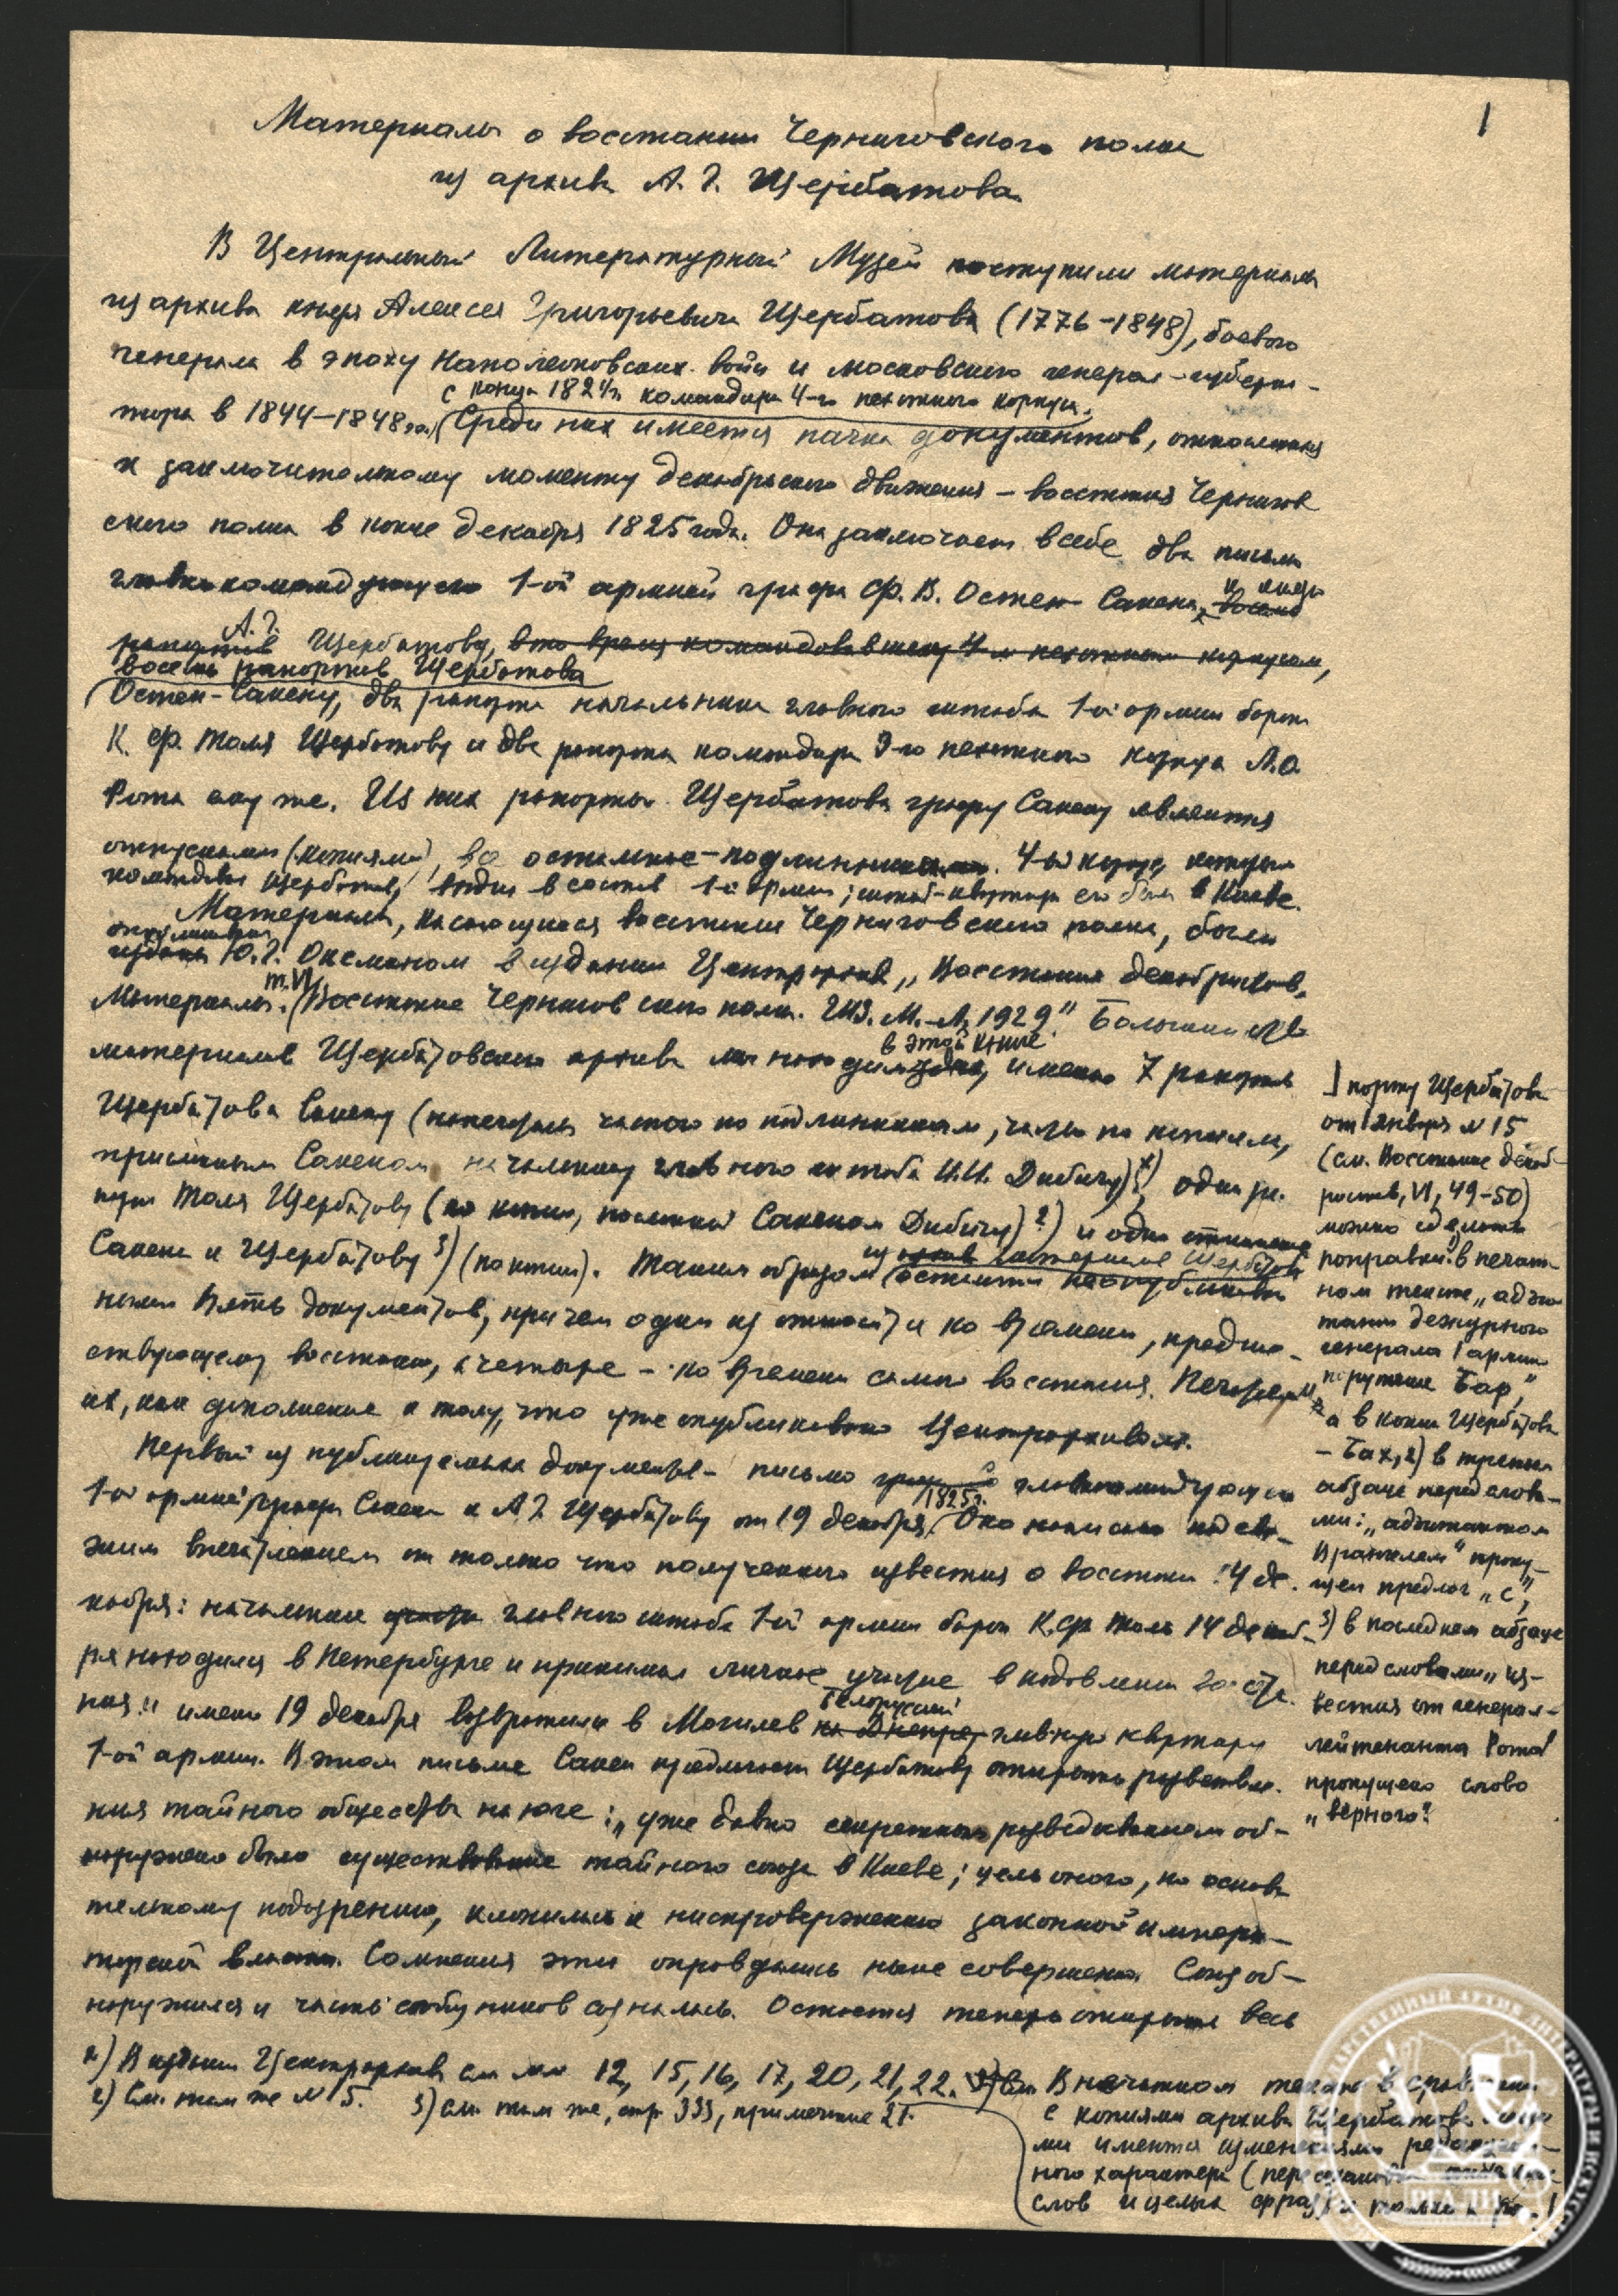 1
Материалы о восстании Черниговского полка
из архива А. Г. Щербатова
В Центральный Литературный Музей поступили материалы
из архива князя Алексея Григорьевича Щербатова (1776-1848), боевого
генерала в эпоху Наполеоновских войн и московского генерал-губерна-
с конца 1824 г. командира 4-го пехотного корпуса.
тора в 1844-1848 гг. Среди них имеется пачка документов, относящихся
к заключительному моменту декабрьского движения - восстания Чернигов
ского полка в конце декабря 1825 года. Она заключает в себе два письма
главнокомандующего 1-ой армией графа Ф. В. Остен-Сакена к князю
А. Г. Щербатову, в то время командовавшему 4-м пехотным корпусом,
восемь рапортов Щербатова
Остен-Сакену, два рапорта начальника главного штаба 1-ой армии барона
К. Ф. Толя Щербатову и два рапорта командира 3-го пехотного корпуса Л.О.
Рота ему же. Из них рапорты Щербатова графу Сакену являются
отпусками (копиями), все остальные - подлинники. 4-ый корпус, которым
командовал Щербатов, входил в состав 1-й армии; штаб-квартира его была в Киеве.
Материалы, касающиеся восстания Черниговского полка, были
опубликованы
изданы Ю. Г. Оксманом в издании Центрархива „Восстание декабристов.
Материалы. т. VI. Восстание Черниговского полка. ГИЗ. М.-Л. 1929". Большинство
материалов Щербатовского архива мы находим в этой книге, именно 7 рапортов
Щербатова Сакену (напечатаны частью по подлинникам, частью по копиям,
присланным Сакеном начальнику главного штаба И.И. Дибичу) 1), один ра-
порт Толя Щербатову (по копии, посланной Сакеном Дибичу) 2) и одно отношение
Сакена к Щербатову 3) (по копии). Таким образом из материалов Щербатова остаются неопубликован
ными пять документов, причем один из них относится ко времени, предше-
ствующему восстанию, а четыре - ко времени самого восстания. Печатаем
их, как дополнение к тому, что уже опубликовано Центрархивом.
Первый из публикуемых документов - письмо главнокомандующего
1-ой армией графа Сакена к А. Г. Щербатову от 19 декабря 1825 г. Оно написано под све-
жим впечатлением от только что полученного известия о восстании 14 де-
кабря: начальник главного штаба 1-ой армии барон К. Ф. Толь 14 декаб-
ря находился в Петербурге и принимал личное участие в подавлении восста-
ния и именно 19 декабря возвратился в Могилев Белорусский на Днепре, главную квартиру
1-ой армии. В этом письме Сакен предлагает Щербатову открыть разветвле-
ния тайного общества на юге: „уже давно секретным разведыванием об-
наружено было существование тайного союза в Киеве; цель оного, по основа
тельному подозрению, клонилась к ниспровержению законной импера-
торской власти. Сомнения эти оправдались ныне совершенно. Союз об-
наружился и часть сообщников созналась. Остается теперь открыть весь
1) В издании Центрархива см. №№ 12, 15, 16, 17, 20, 21, 22.
2) См. там же № 5. 3) см. там же, стр. 333, примечание 21.
В печатном тексте в сравнении
с копиями архива Щербатова
имеются изменения редакцион-
ного характера (перестановки
слов и целых фраз)
порту Щербатова
от 1 января № 15
(см. Восстание декаб-
ристов, VI, 49-50)
можно сделать
поправки: в печат-
ном тексте „адъю-
тант дежурного
генерала 1 армии
поручик Бар",
а в копии Щербатова
- Бах, 2) в третьем
абзаце перед слова-
ми: „адъютантом
Врангелем" пропу-
щен предлог „с",
3) в последнем абзаце
перед словами „из-
вестия от генерал-
лейтенанта Рота"
пропущено слово
„верного".